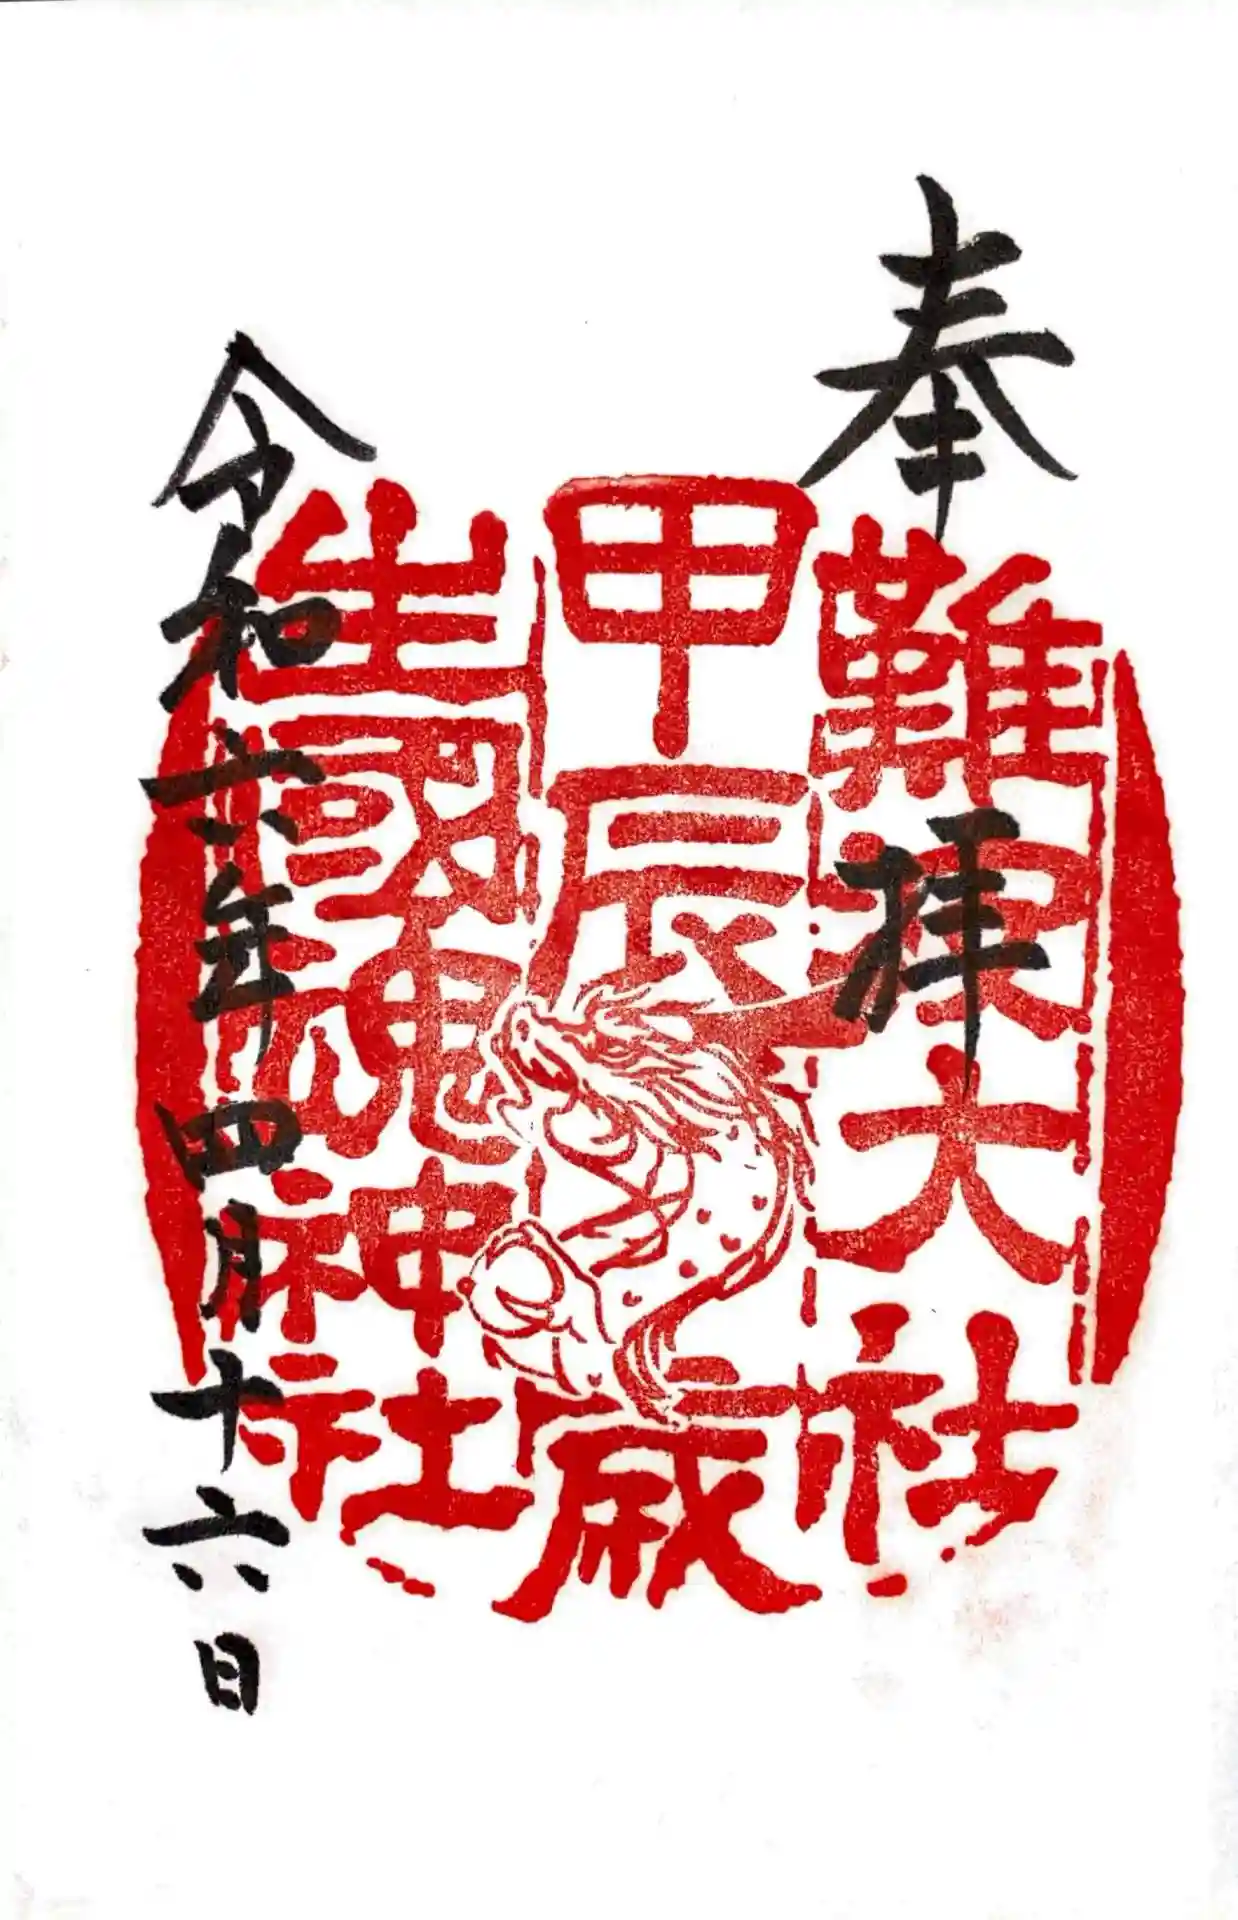 奉拝
難波大社
甲辰歳
生國魂神社
令和六年四月十六日